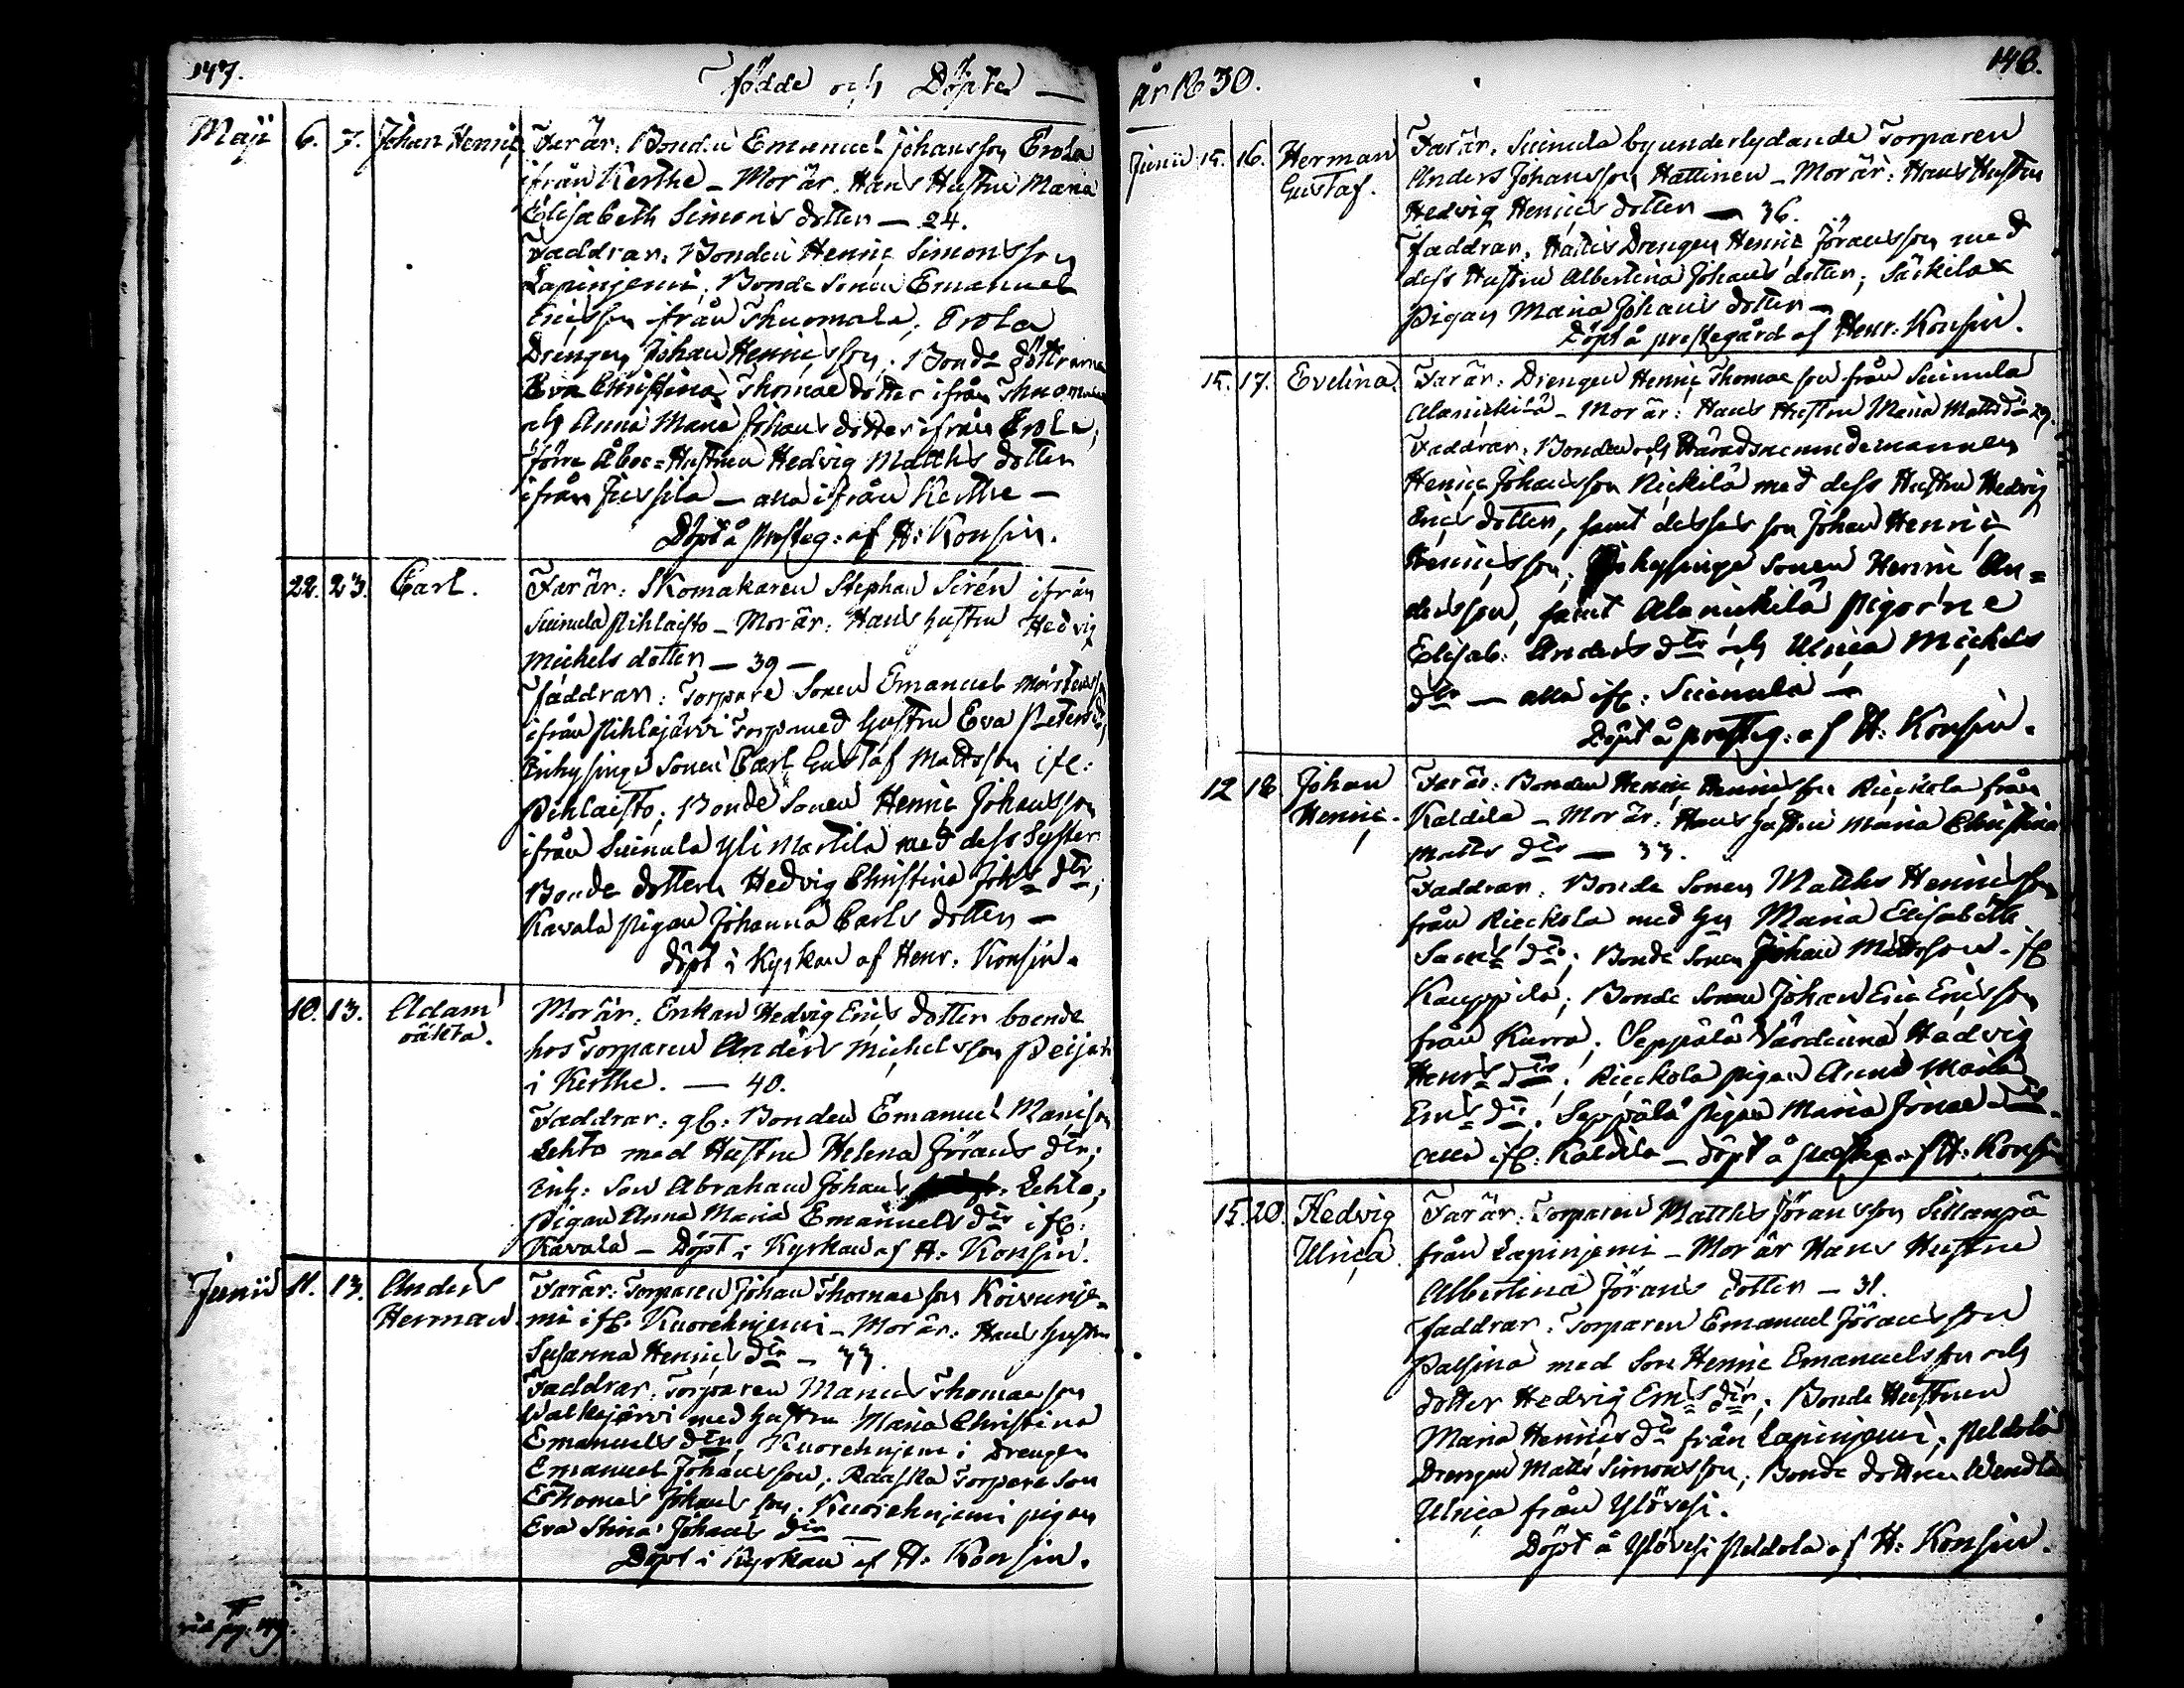 147.
Födde och Döpte —
Maji 6. 7. Johan Henric Far är: Bonden Emanuel Johansson Erola
ifrån Kerthe – Mor är: Hans Hustru Maria
Elisabeth Simons dotter — 24.
Faddrar: Bonden Henric Simonsson
Lapinjemi, Bonde Sonen Emanuel
Ericsson ifrån Thuomala, Erola
Drengen Johan Henricsson; Bonde döttrarna
Eva Christina Thomae dotter ifrån
och Anna Maria Johans dotter ifrån Erola,
Förre Åboe=Hustrun Hedvig Matths dotter
ifrån Jussila — alla ifrån Kerthe —
Döpt å Presteg: af H: Konsin.
22. 23. Carl. Far är: Skomakaren Stephan Sirén ifrån
Suinula Pihlaisto – Mor är: Hans hustru Hedvig
Michels dotter — 39 —
Faddrar: Torpare Sonen Emanuel Mårtensson
ifrån Pihlajärvi Torp med hustru Eva Peters dr,
Inhysings Sonen Carl Gustaf Mattsson ifr:
Pihlaisto; Bonde Sonen Henric Johansson
ifrån Suinula Yli Martila med dess Syster
Bonde dottern Hedvig Christina Johs dtr;
Kavala Pigan Johanna Carls dotter —
döpt i Kyrkan af Henr: Konsin.
10. 13. Adam Mor är: Enkan Hedvig Erics dotter boende
oäkta. hos Torparen Anders Michelsson
i Kerthe. — 40.
Faddrar: Bonden Emanuel
Lehto med Hustru Helena Jörans dtr;
Inh: Son Abraham Johans Lehto;
Pigan Anna Maria Emanuels dtr ifr:
Kavala – Döpt i Kyrkan af H: Konsin.
Junii 11. 13. Anders Far är: Torparen Johan Thomae son Koivunje=
Herman. mi ifr: Kuorehnjemi – Mor är: Hans hustru
Susanna Henrics dtr – 33.
Faddrar: Torparen Manuel Thomae son
Walkejärvi med hustru Maria Christina
Emanuels dtr, Kuorehnjemi Drengen
Emanuel Johansson; Raaska Torpare Son
Johans son; Kuorehnjemi pigan
Eva Stina Johans dtr
Döpt i Kyrkan af H: Konsin.
vid pag: 149.
år 1830.
148.
Junii 15. 16. Herman Far är: Suinula by underlydande Torparen
Gustaf. Anders Johansson Hattinen – Mor är: Hans Hustru
Hedvig Henrics dotter — 36.
Faddrar: Drengen Henric Jöransson med
dess Hustru Albertina Johans dotter; Säkilä
Pigan Maria Johans dotter —
Döpt å prestegård af Henr: Konsin.
15. 17. Evelina. Far är: Drengen Henric Thomae son från Suinula
Alanickilä – Mor är: Hans Hustru Maria Matts dr 29.
Faddrar: Bonden och Häradsnämndemannen
Henric Johansson Nickilä med dess Hustru Hedvig
Erics dotter, samt desses son Johan Henric
Henricsson; Inhysings Sonen Henric An=
dersson, samt Alanickilä pigorne
Elisab: Anders dtr och Ulrica Michels
dtr — alla ifr: Suinula —
Döpt å presteg: af H: Konsin.
12 18. Johan Far är: Bonden Henric Henricsson Rieckola från
Henric. Kaldila – Mor är: Hans hustru Maria Christina
Matts dtr — 33.
Faddrar: Bonde Sonen Matths Henricsson
från Rieckola med hu Maria Elisabeth
Sams dtr; Bonde Sonen Johan Mattsson ifr
Kauppila; Bonde Sonen Johan Eric Ericsson
från Kurra; Seppälä Värdinna Hedvig
Henrs dtr; Rieckola pigan Anna Maria
Ems dtr; Seppälä pigan Maria dtr
alla ifr: Kaldila – döpt å presteg af H: Konsin
15. 20. Hedvig Far är: Torparen Matths Jöransson Sillanpä
Ulrica. från Lapinjemi – Mor är Hans Hustru
Albertina Jörans dotter — 31.
Faddrar: Torparen Emanuel Jöransson
med Son Henric Emanuelsson och
dotter Hedvig Ems dtr; Bonde Hustrun
Maria Henrics dtr från Lapinjemi; Peldola
Drengen Matts Simonsson; Bonde dottren Wendla
Ulrica från Ylövesi.
Döpt å Ylövesi Peldola af H: Konsin.